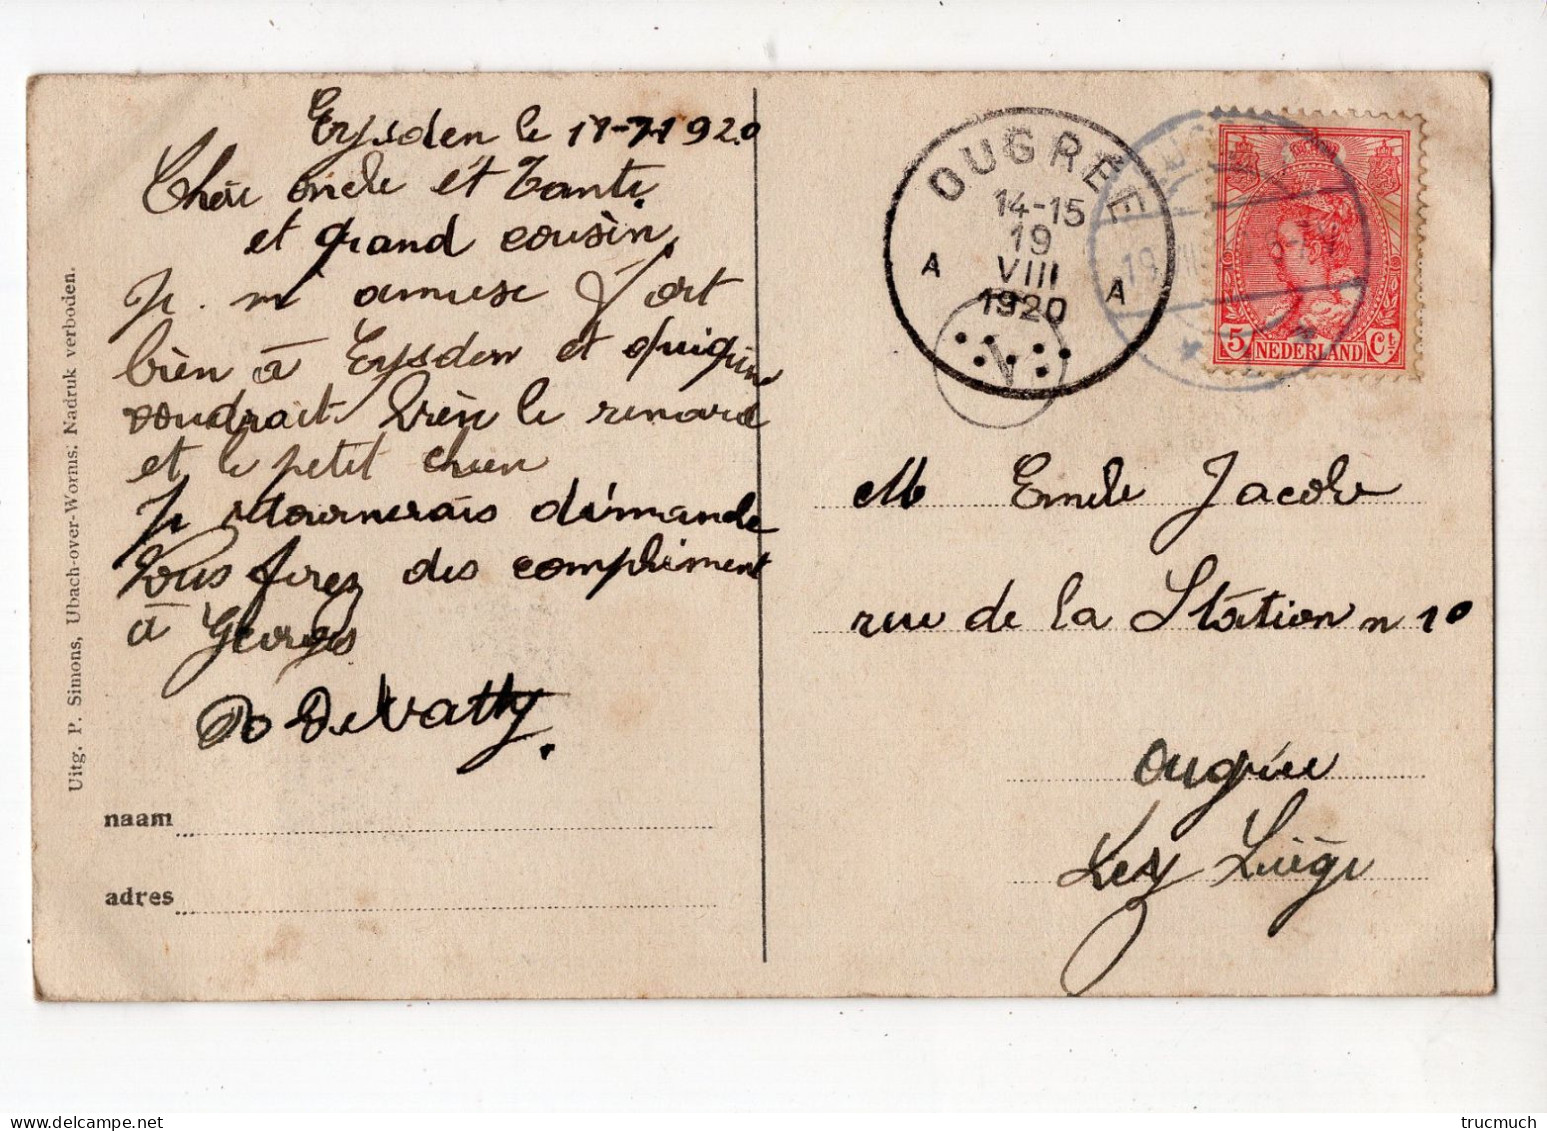 Eysden le 17-7-1920
Chère oncle et Tante
et grand cousin
Je m amuse fort
bièn à Eysden et
voudrait bièn le renard
et le petit chien
Je retournerais démande
Vous ferez des compliment
à Georges
naam
adres
Uitg. P. Simons, Ubach-over-Worms: Nadruk verboden.
OUGRÉE
14-15
19
VIII
1920
A A
5 NEDERLAND Ct
M Emile Jacobe
rue de la Station n 10
Ougrée
Lez Liége
trucmuch